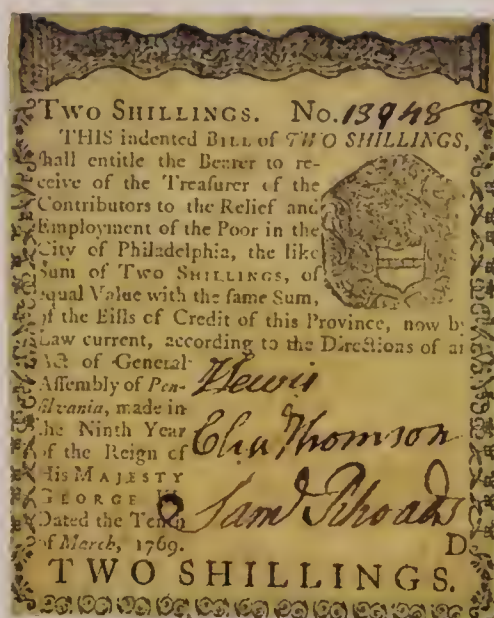 TWO SHILLINGS. No. 13948
THIS indented BILL of TWO SHILLINGS,
shall entitle the Bearer to re-
ceive of the Treasurer of the
Contributors to the Relief and
Employment of the Poor in the
City of Philadelphia, the like
Sum of TWO SHILLINGS, of
equal Value with the same Sum,
of the Bills of Credit of this Province, now by
Law current, according to the Directions of an
Act of General
Assembly of Pen-
silvania, made in
the Ninth Year
of the Reign of
His MAJESTY
GEORGE III.
Dated the Tenth
of March, 1769.
Thomson
Saml Rhoads
D
TWO SHILLINGS.